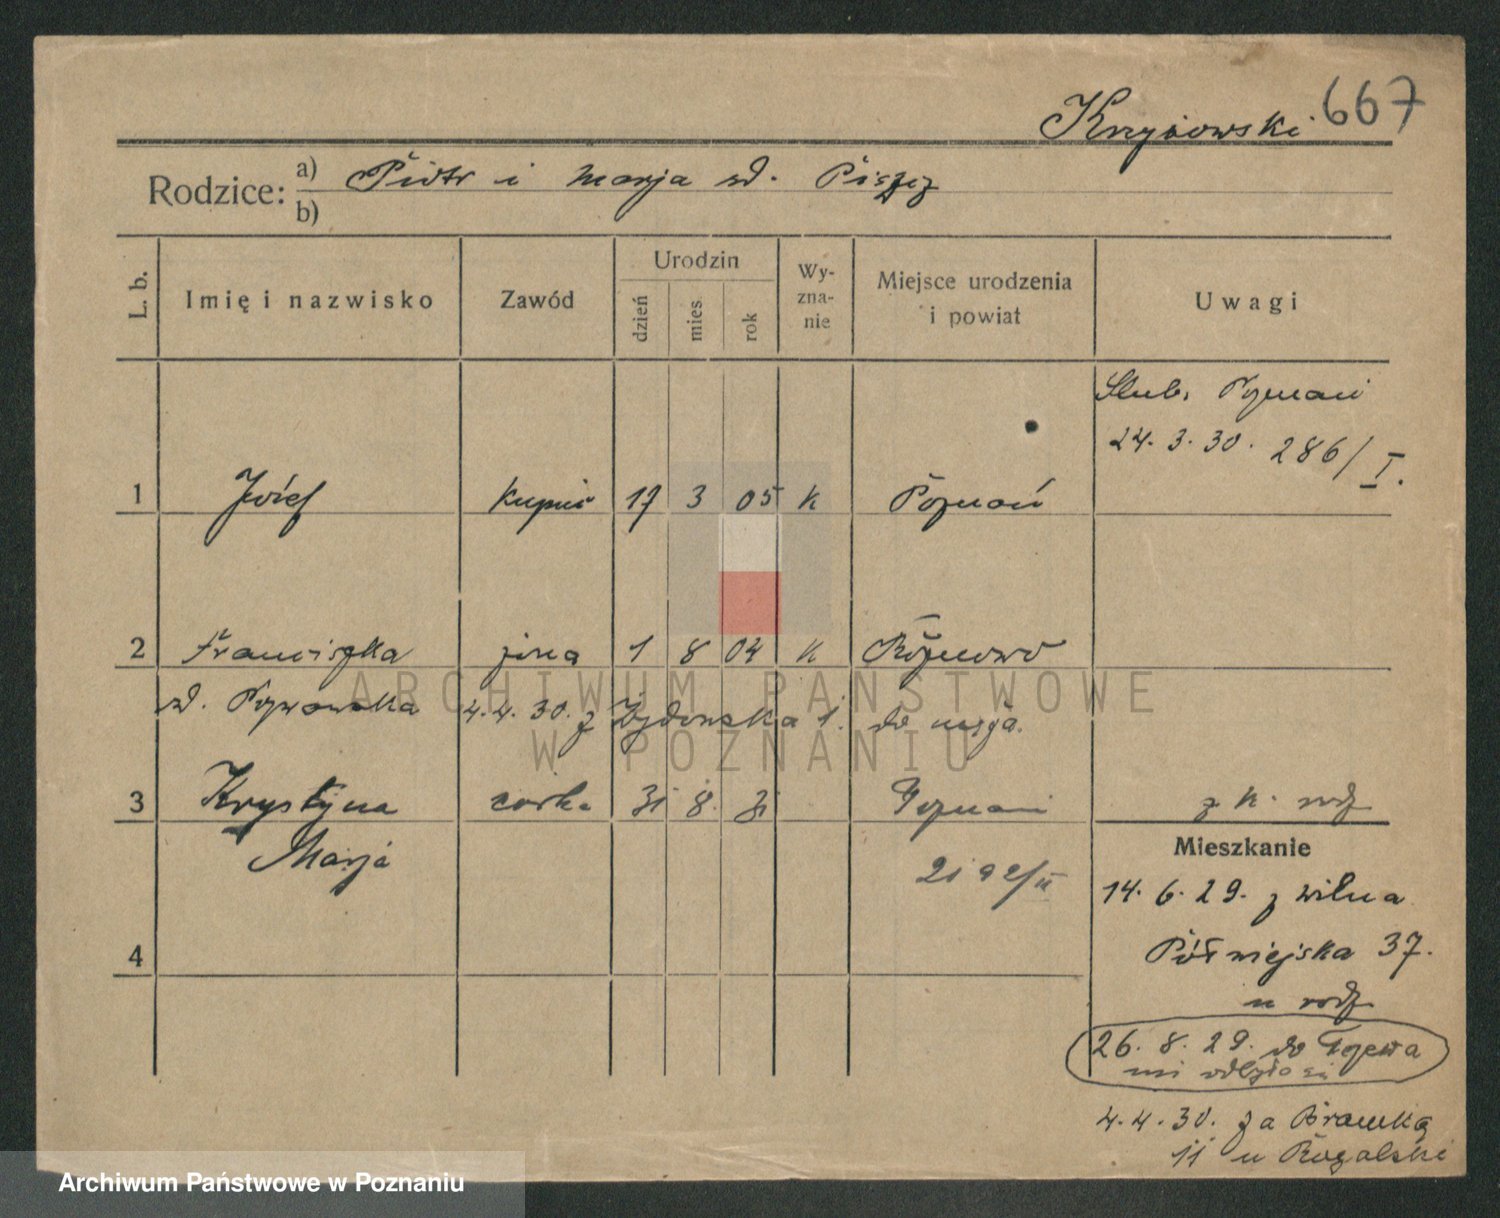 667
Krzyżowski
Rodzice: a) Piotr i Marja zd. Piszcz
b)
L. b. Imię i nazwisko Zawód Urodzin dzień mies. rok Wy-zna-nie Miejsce urodzenia i powiat Uwagi
Ślub. Poznań
24. 3. 30. 286/I.
1 Józef kupiec 17 3 05 k Poznań
2 Franciszka żona 1 8 04 k Rożnowo
zd. 4.4.30. z Żydowska 1. do męża.
3 Krystyna córka 31 8. 31 Poznań z k. rodz
Marja
2192/II
Mieszkanie
14. 6. 29. z Wilna
Półwiejska 37.
u rodz
4
26. 8. 29. do
nie odbyło się
4. 4. 30. Za Bramką
11 u Rogalski
ARCHIWUM PAŃSTWOWE
W POZNANIU
Archiwum Państwowe w Poznaniu